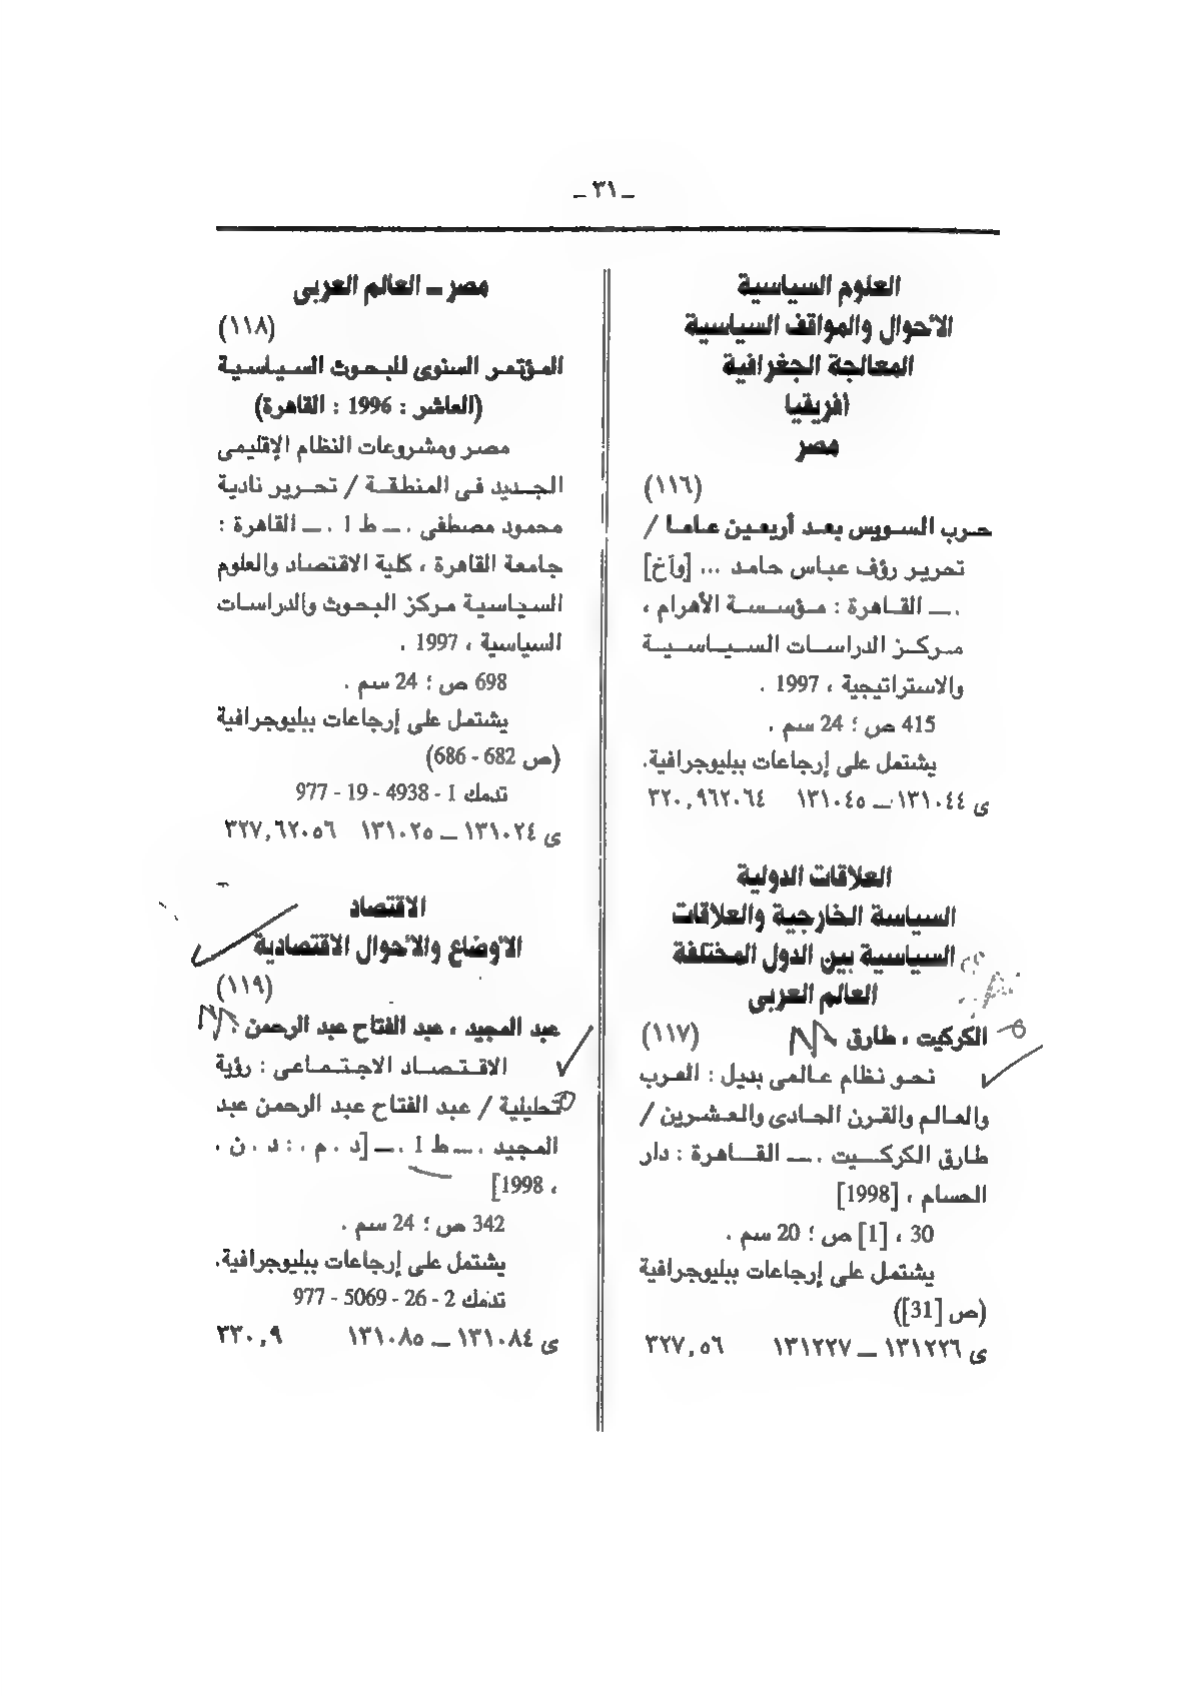 ـ ٣١ ـ
العلوم السياسية
الأحوال والمواقف السياسية
المعالجة الجغرافية
أفريقيا
مصر
(١١٦)
حرب السويس بعد أربعين عاما /
تحرير رؤف عباس حامد ... [وآخ]
. ـ القاهرة : مؤسسة الأهرام ،
مركز الدراسات السياسية
والاستراتيجية ، 1997 .
415 ص ؛ 24 سم .
يشتمل على إرجاعات ببليوجرافية.
ى ١٣١٠٤٤ ـ ١٣١٠٤٥ ٣٢٠,٩٦٢٠٦٤
العلاقات الدولية
السياسة الخارجية والعلاقات
السياسية بين الدول المختلفة
العالم العربى
الكركيت ، طارق (١١٧)
نحو نظام عالمى بديل : العرب
والعالم والقرن الحادى والعشرين /
طارق الكركيت . ـ القاهرة : دار
الحسام ، [1998]
30 ، [1] ص ؛ 20 سم .
يشتمل على إرجاعات ببليوجرافية
(ص [31])
ى ١٣١٢٢٦ ـ ١٣١٢٢٧ ٣٢٧,٥٦
مصر ـ العالم العربى
(١١٨)
المؤتمر السنوى للبحوث السياسية
(العاشر : 1996 : القاهرة)
مصر ومشروعات النظام الإقليمى
الجديد فى المنطقة / تحرير نادية
محمود مصطفى . ـ ط 1 . ـ القاهرة :
جامعة القاهرة ، كلية الاقتصاد والعلوم
السياسية مركز البحوث والدراسات
السياسية ، 1997 .
698 ص ؛ 24 سم .
يشتمل على إرجاعات ببليوجرافية
(ص 682 - 686)
تدمك 1 - 4938 - 19 - 977
ى ١٣١٠٢٤ ـ ١٣١٠٢٥ ٣٢٧,٦٢٠٥٦
الاقتصاد
الأوضاع والأحوال الاقتصادية
(١١٩)
عبد المجيد ، عبد الفتاح عبد الرحمن .
الاقتصاد الاجتماعى : رؤية
تحليلية / عبد الفتاح عبد الرحمن عبد
المجيد . ـ ط 1 . ـ [د . م . : د . ن .
، 1998]
342 ص ؛ 24 سم .
يشتمل على إرجاعات ببليوجرافية.
تدمك 2 - 26 - 5069 - 977
ى ١٣١٠٨٤ ـ ١٣١٠٨٥ ٣٣٠,٩